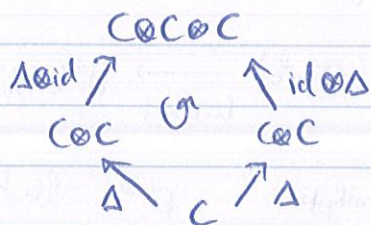 C⊗C⊗C
Δ⊗id id⊗Δ
C⊗C C⊗C
Δ C Δ